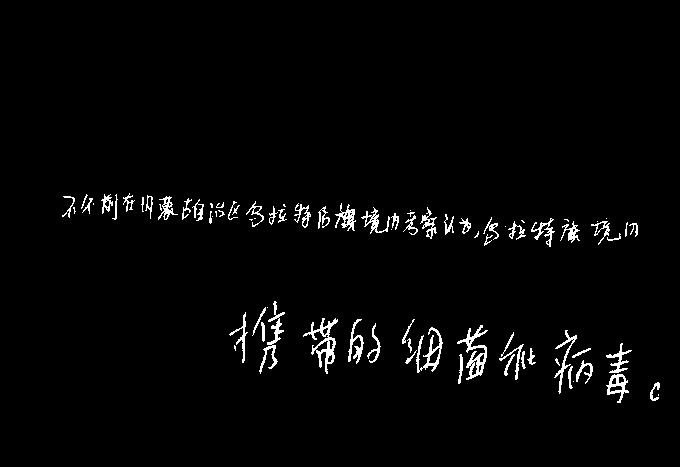 不久前在内蒙古自治区乌拉特后旗境内考察认为,乌拉特旗境内
携带的细菌和病毒。